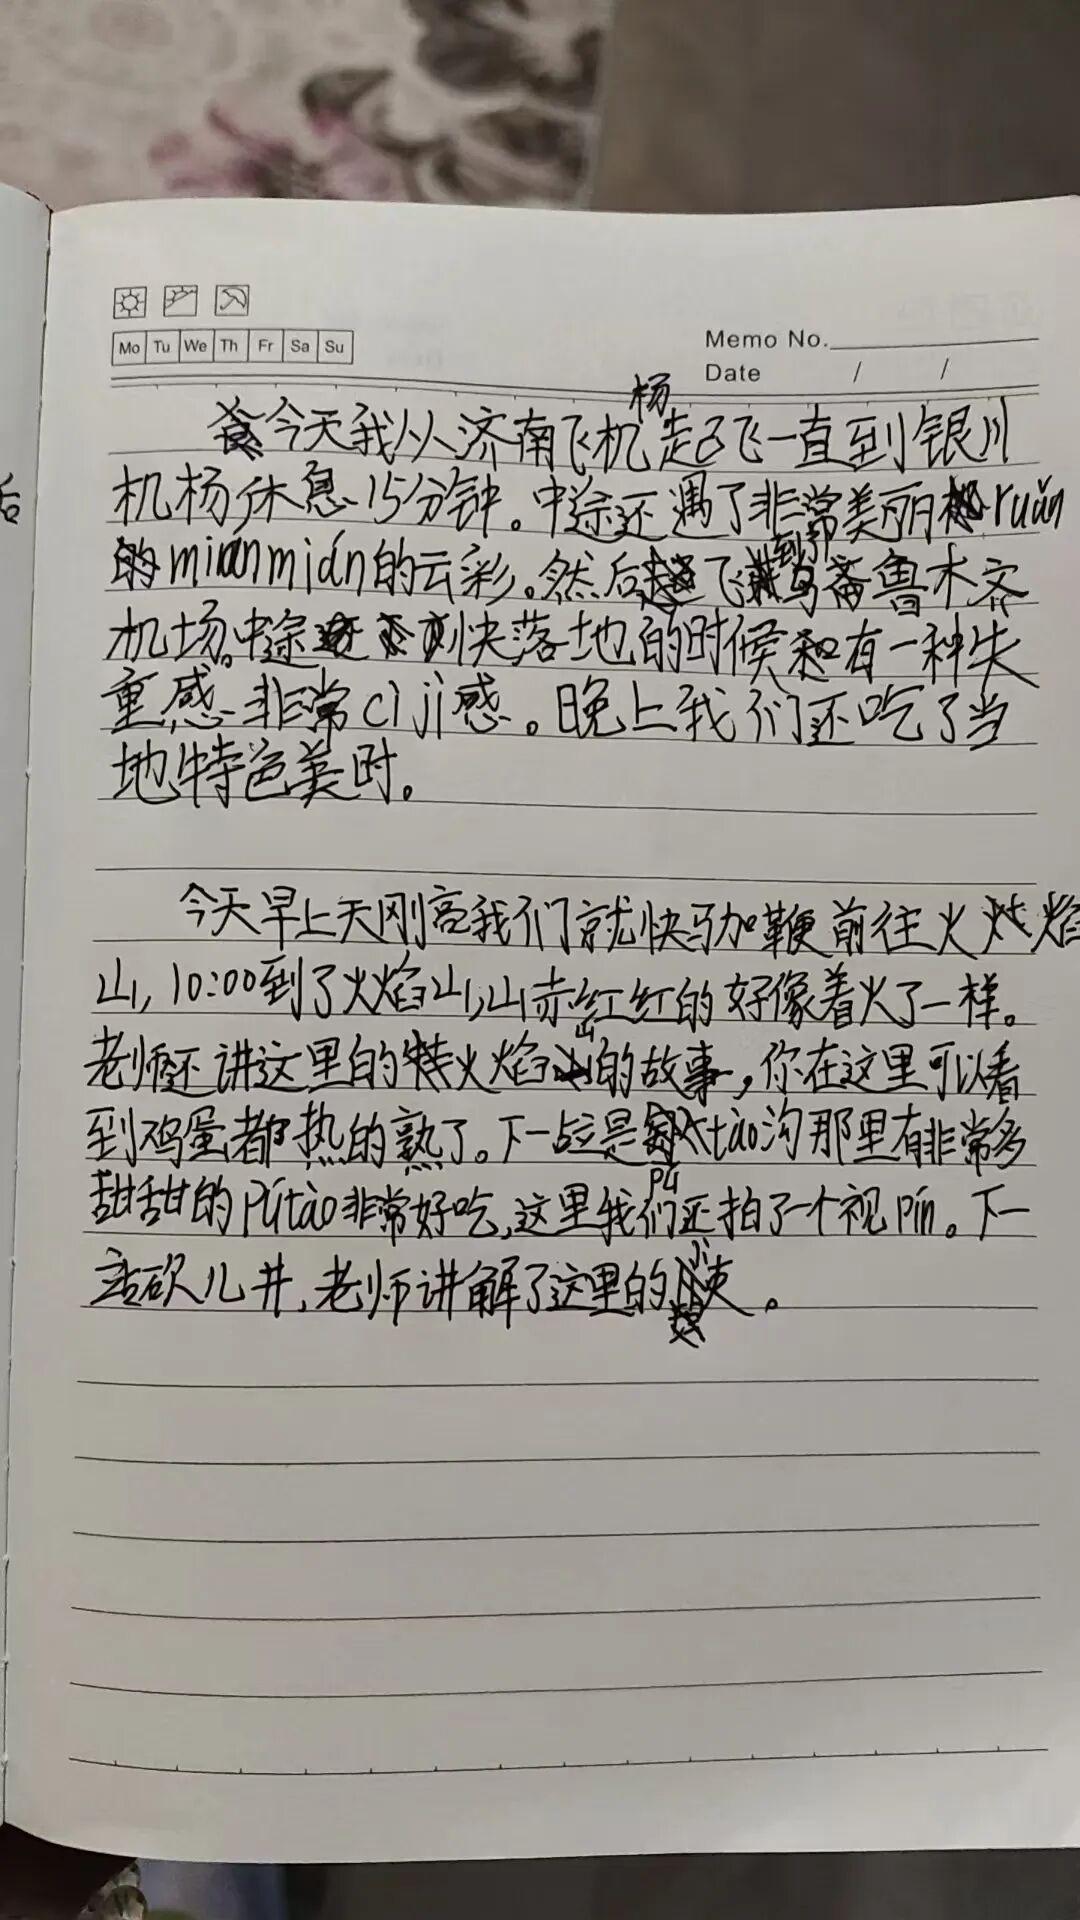 Mo Tu We Th Fr Sa Su
Memo No.
Date / /
杨
今天我从济南飞机起飞一直到银川
机杨休息15分钟。中途还遇了非常美丽ruǎn
mián mián的云彩。然后飞到乌鲁木齐
机场。中途快落地的时候和有一种失
重感非常cì jī感。晚上我们还吃了当
地特色美时。
今天早上天刚亮我们就快马加鞭前往火焰
山,10:00到了火焰山,山赤红红的好像着火了一样。
老师还讲这里的火焰山的故事,你在这里可以看
到鸡蛋都热的熟了。下一站是pútào沟那里有非常多
甜甜的pútào非常好吃,这里我们还拍了一个视pín。下一
站砍儿井,老师讲解了这里的。